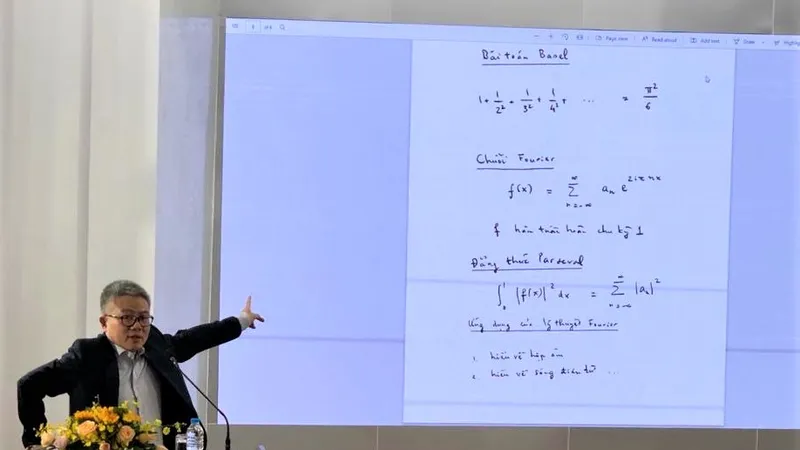 Page view
Read aloud
Add text
Draw
Bài toán Basel
1 + 1/2² + 1/3² + 1/4² + ... = π²/6
Chuỗi Fourier
f(x) = ∑_{n=-∞}^{∞} aₙ e^{2iπnx}
f hàm tuần hoàn chu kỳ 1
Đẳng thức Parseval
∫₀¹ |f(x)|² dx = ∑_{n=-∞}^{∞} |aₙ|²
Ứng dụng của lý thuyết Fourier
1. hiểu về hợp âm
2. hiểu về sóng điện từ ...